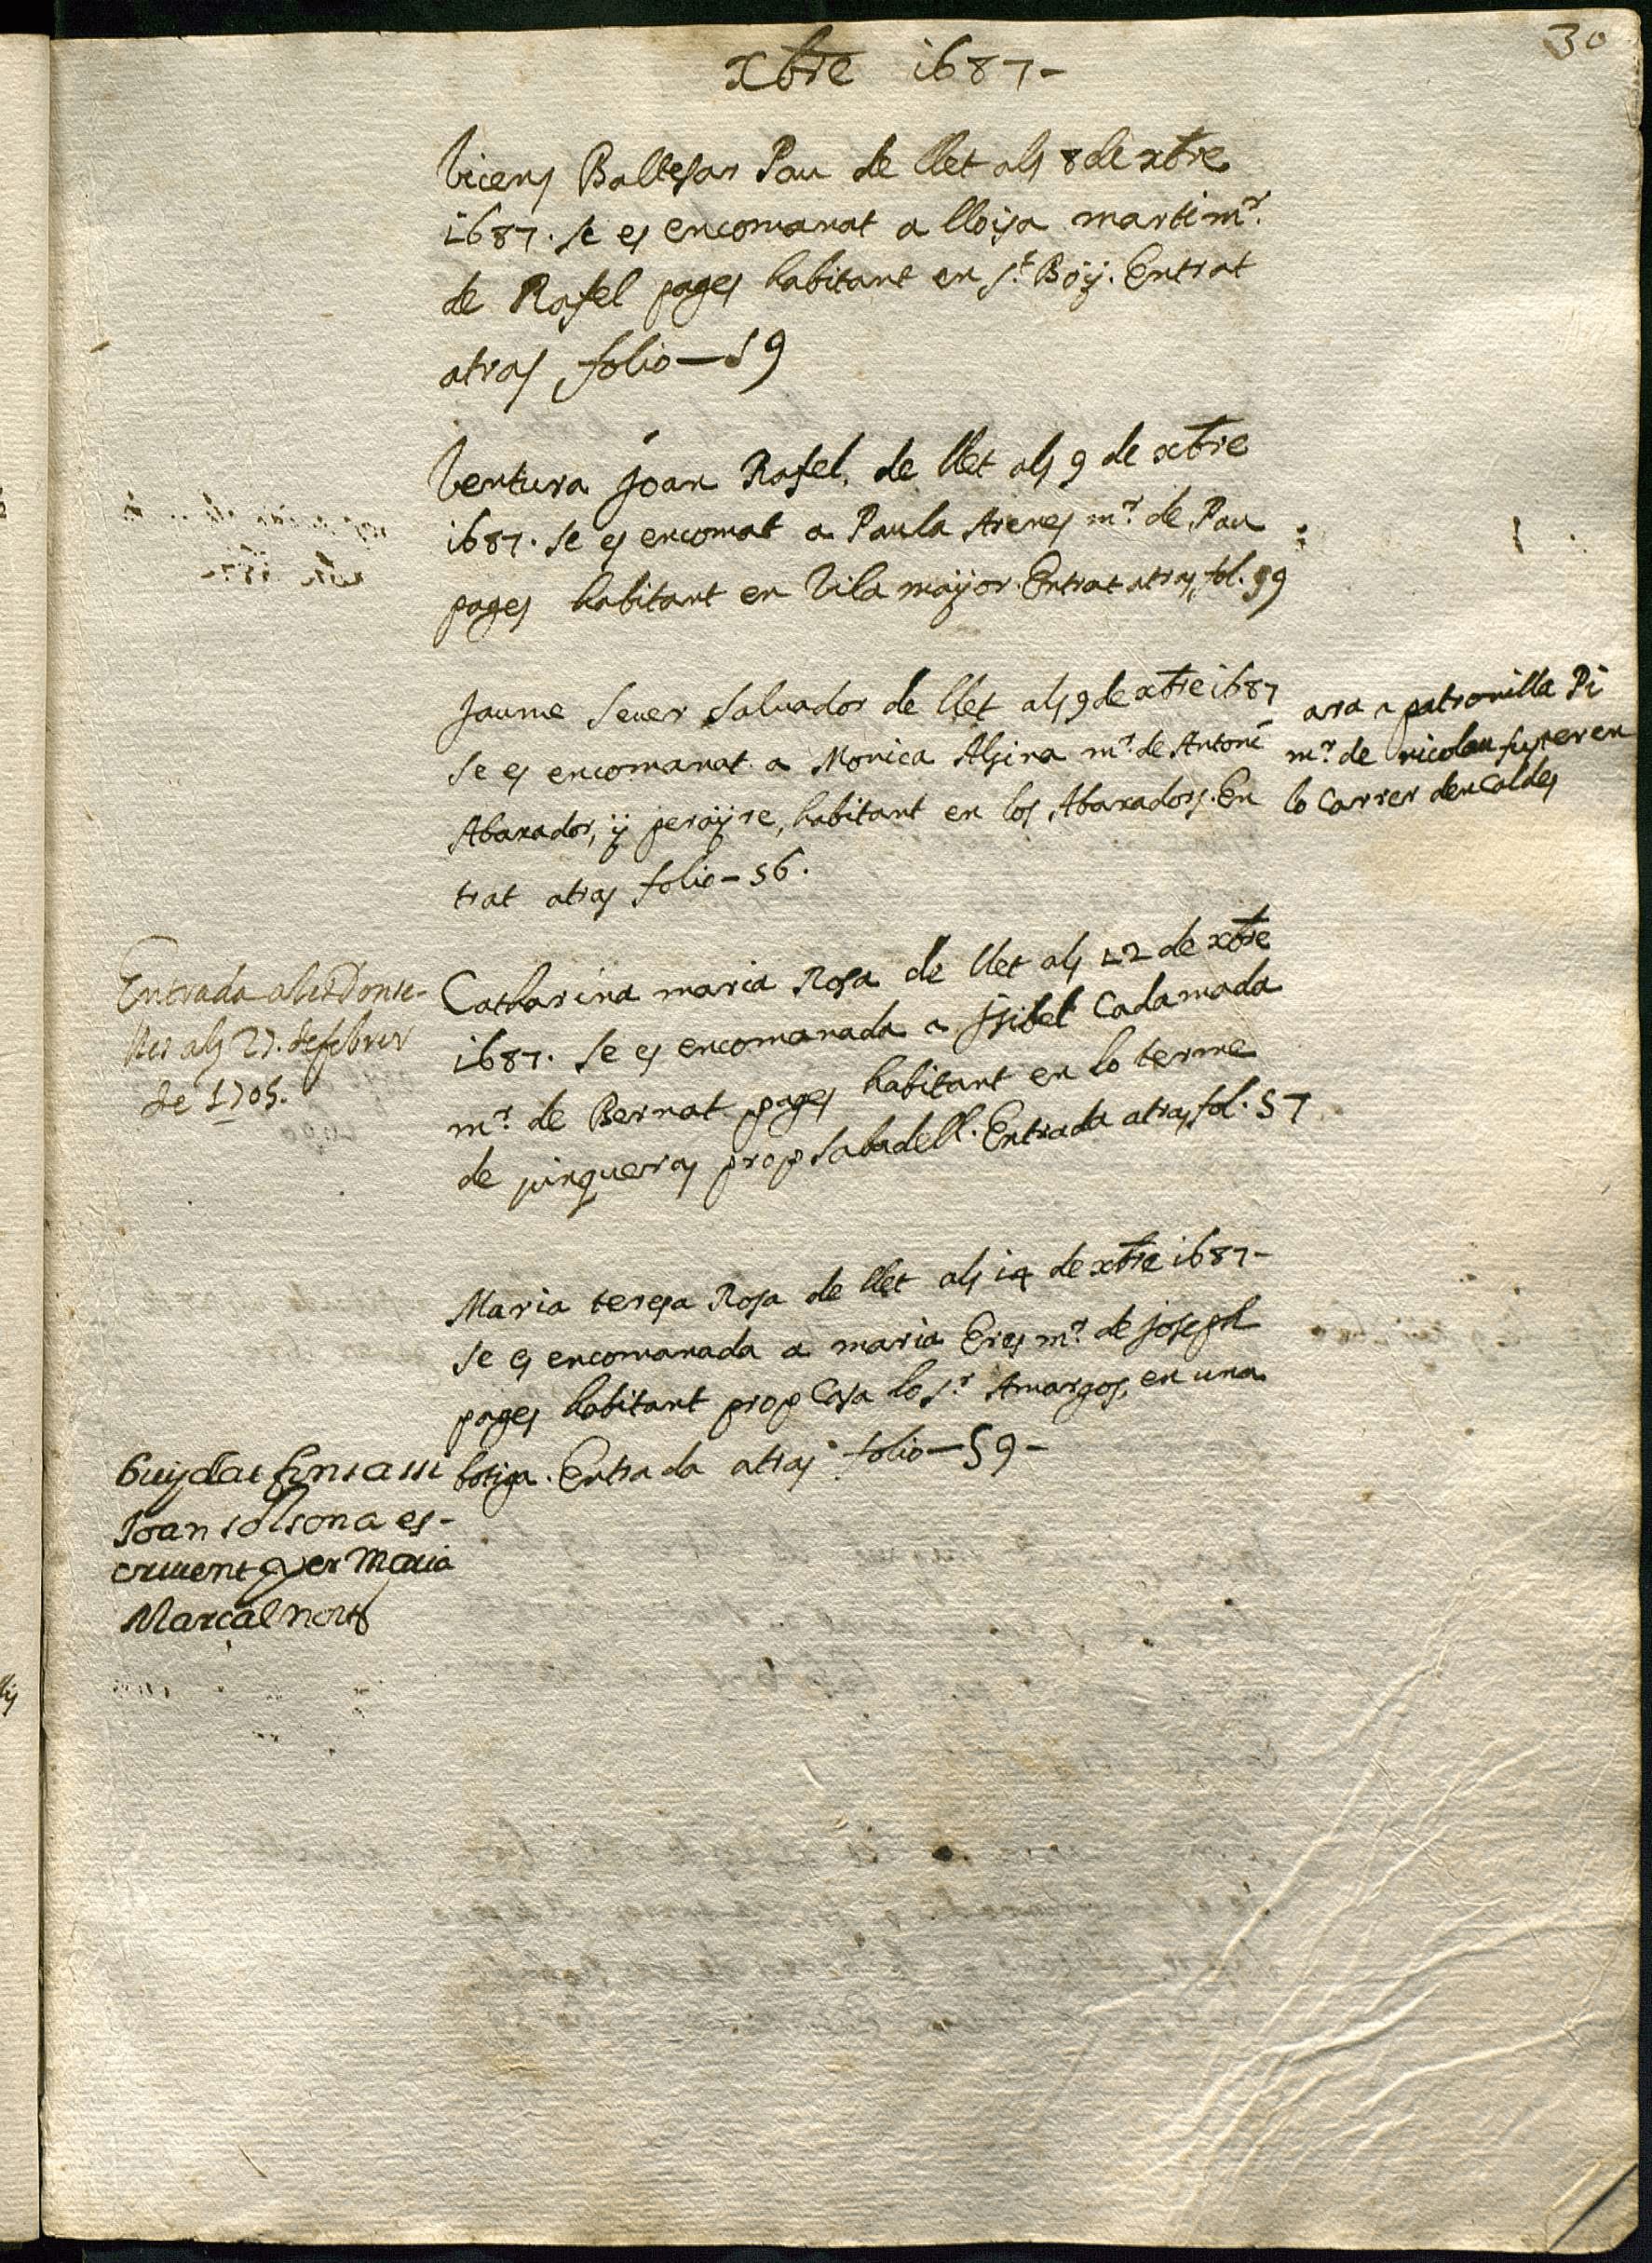 30
xbre 1687-
Vicens Baltesar Pau de llet als 8 de xbre
1687. se es encomanat a lloisa marti mr.
de Rafel pages habitant en st. Boÿ. Entrat
atras folio — 59
Ventura Joan Rafel, de llet als 9 de xbre
1687. se es encomat a Paula Arenes mr. de Pau
pages habitant en Vila maÿor. Entrat atras, fol. 59
Jaume Sever Salvador de llet als 9 de xbre 1687
se es encomanat a Monica Alsina mr. de Antoni
Abaxador, ÿ peraÿre, habitant en los Abaxadors. En
trat atras folio - 56.
ara a patronilla Pi
mr. de nicolau fuster en
lo Carrer den Caldes
Entrada a les Donse-
lles als 27. de febrer
de 1705.
Catharina maria Rosa de llet als 12 de xbre
1687. se es encomanada a Isibel Cadamada
mr. de Bernat pages habitant en lo terme
de junqueras prop sabadell. Entrada atras, fol. 57
Maria teresa Rosa de llet als 14 de xbre 1687-
se es encomanada a maria Eres mr. de joseph
pages habitant prop Casa lo sr. Amargos, en una
botiga. Entrada atras folio — 59 -
buÿdat fins assi
Joan solsona es-
crivent per Maria
Marcal